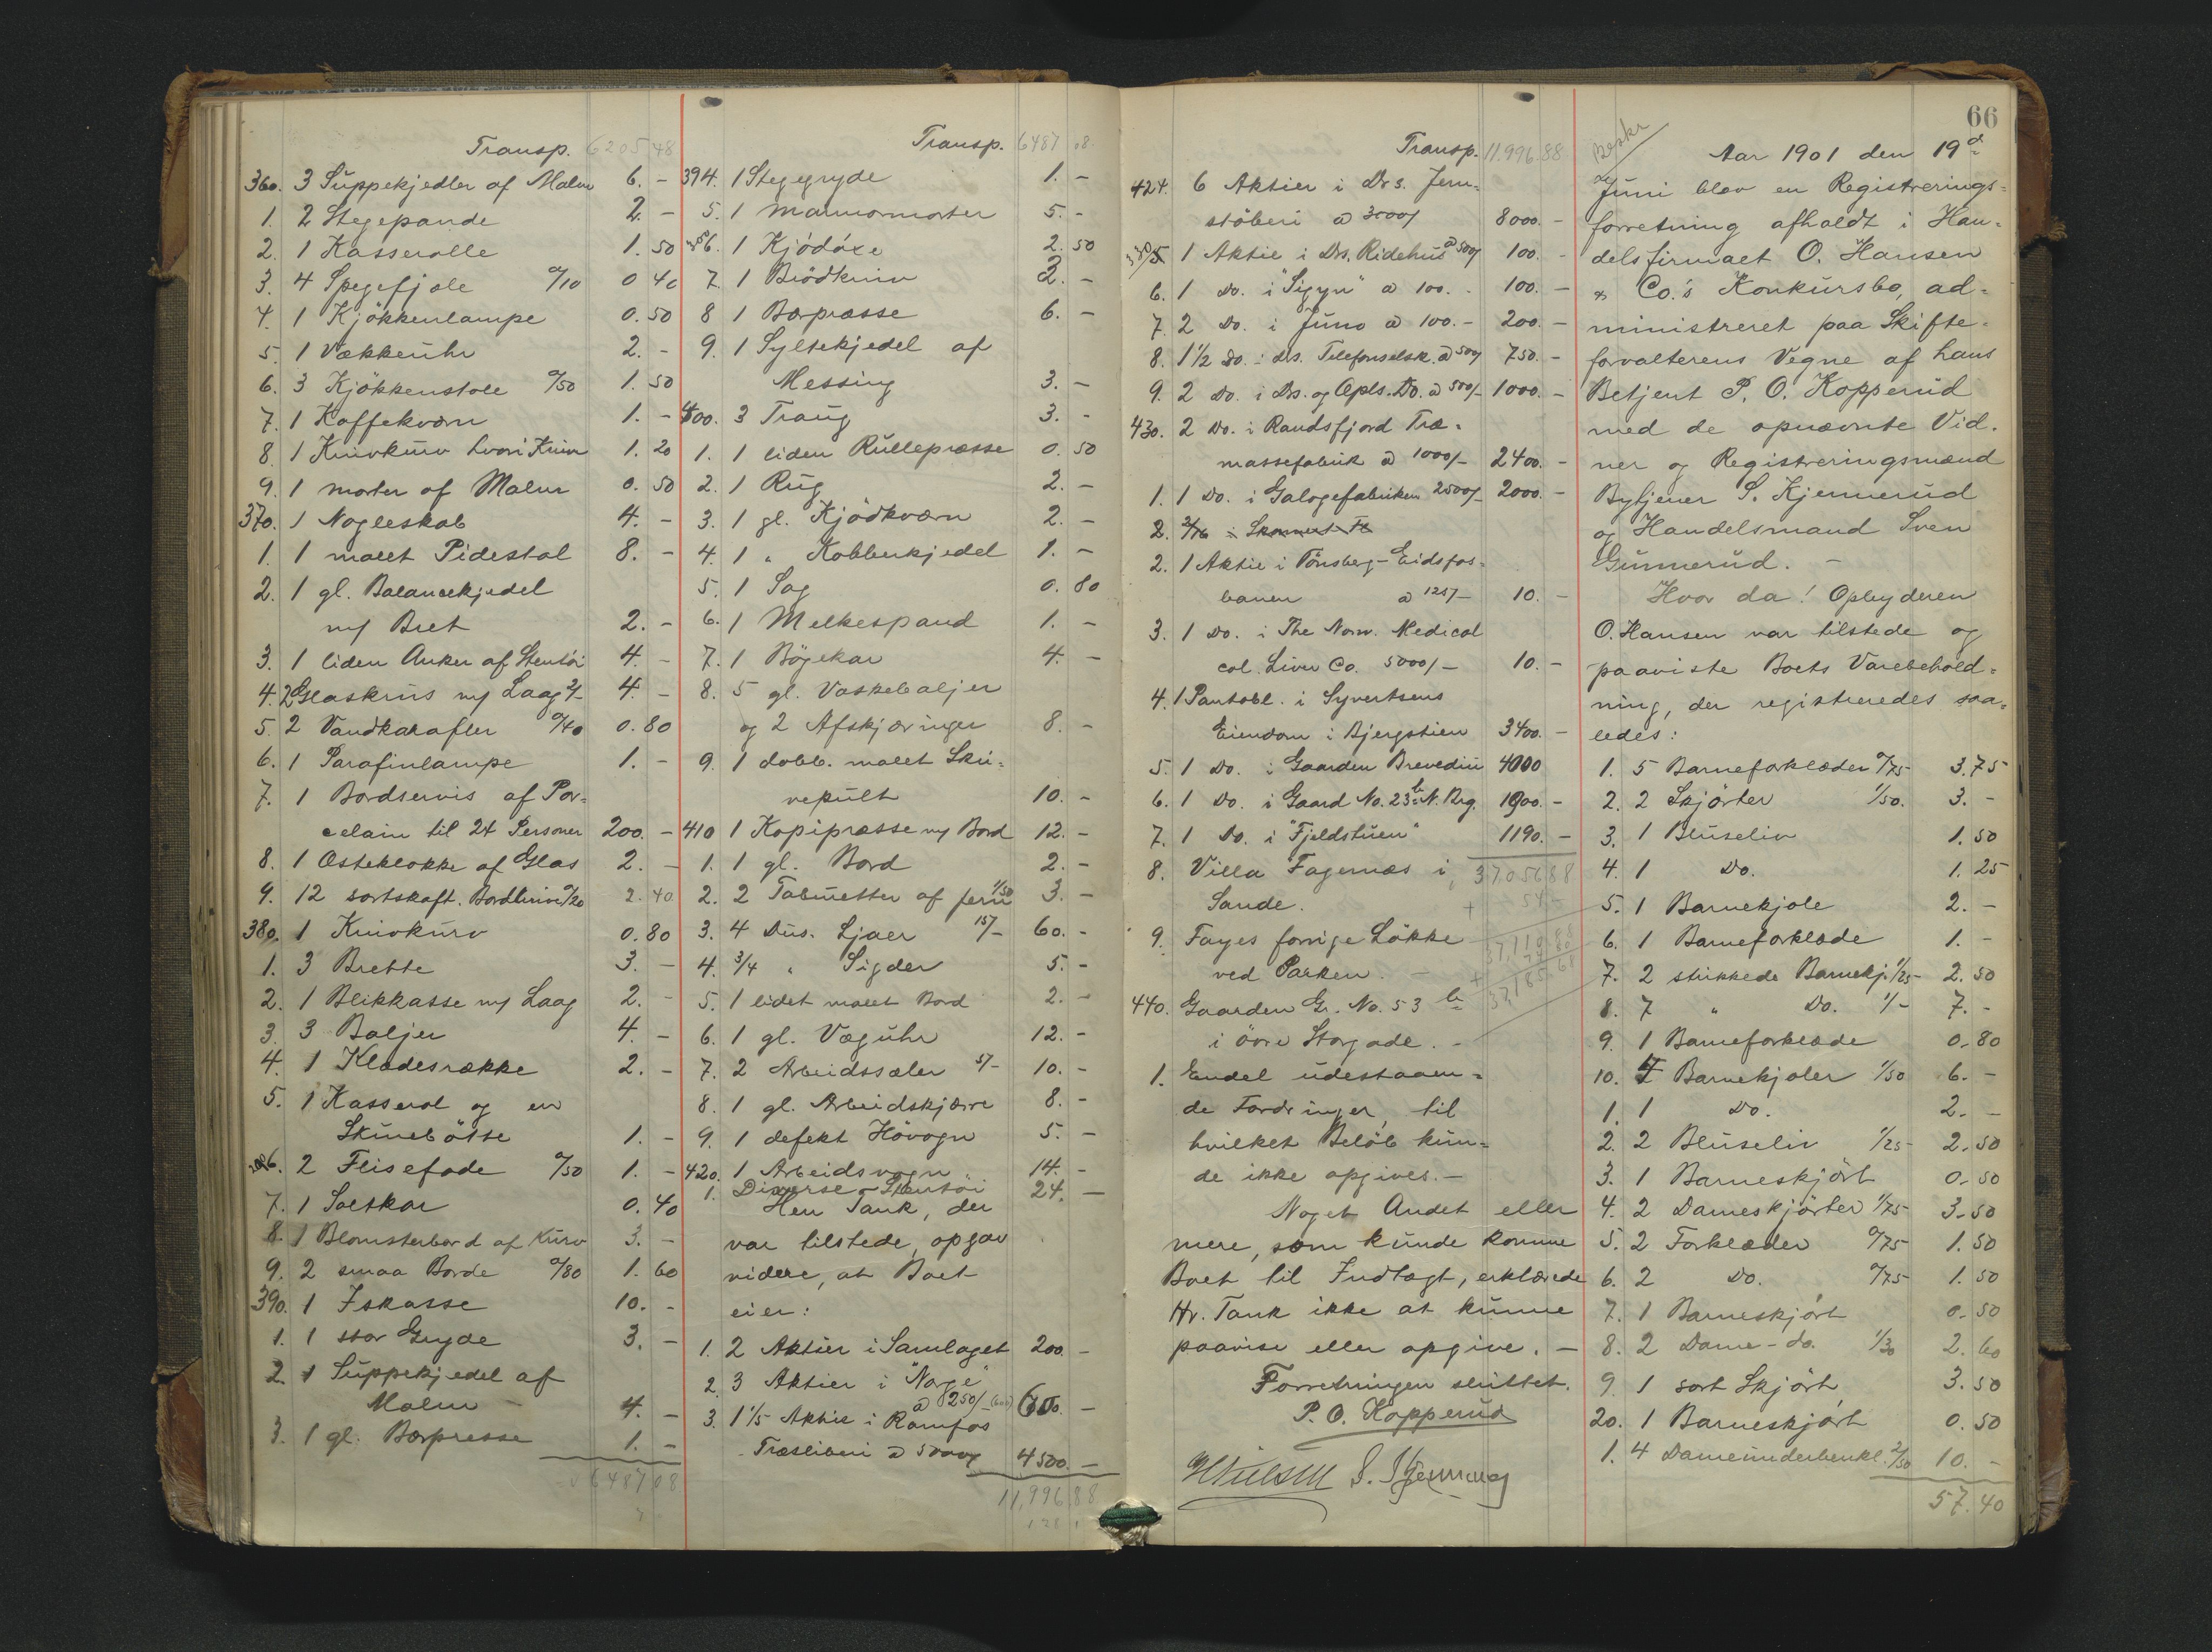 Transp. 6205 48
360. 3 Suppekjedler af Malm 6. -
1. 2 Stegepande 2. -
2. 1 Kasserolle 1. 50
3. 4 Spegefjole 0/10 0 40
4. 1 Kjökkenlampe 0. 50
5. 1 Vækkeuhr 2. -
6. 3 Kjökkenstole 0/50 1. 50
7. 1 Kaffekværn 1. -
8. 1 Knivkurv hvori Kniv 1. 20
9. 1 morter af Malm 0. 50
370. 1 Nøgleskab 4. -
1. 1 malet Pidestal 8. -
2. 1 gl. Balancekjedel
m/ Bret 2. -
3. 1 liden Anker af Stentöi 4. -
4. 2 Glaskrus m/ Laag 2/- 4. -
5. 2 Vandkarafler 0/40 0. 80
6. 1 Parafinlampe 1. -
7. 1 Bordservis af Por-
celain til 24 Personer 200. -
8. 1 Osteklokke af Glas 2. -
9. 12 sortskaft. Bordknive 0/20 2. 40
380. 1 Knivkurv 0. 80
1. 3 Brette 3. -
2. 1 Blikkasse m/ Laag 2. -
3. 3 Baljer 4. -
4. 1 Klædesrække 2. -
5. 1 Kasserol og en
Skurebötte 1. -
6. 2 Flisefade 0/50 1. -
7. 1 Saltkar 0. 40
8. 1 Blomsterbord af Kurv 3. -
9. 2 smaa Borde 0/80 1. 60
390. 1 Iskasse 10. -
1. 1 stor Gryde 3. -
2. 1 Suppekjedel af
Malm 4. -
3. 1 gl. Bærpresse 1. -
6487 08
Transp. 6487 08.
394. 1 Stegegryde 1. -
5. 1 Marmormorter 5. -
6. 1 Kjödöxe 2. 50
7. 1 Brödkniv 2. -
8 1 Bærpresse 6. -
9. 1 Syltekjedel af
Messing 3. -
400. 3 Traug 3. -
1. 1 liden Rullepræsse 0. 50
2. 1 Rug 2. -
3. 1 gl. Kjödkværn 2. -
4. 1 " Kobberkjedel 1. -
5. 1 Sag 0. 80
6. 1 Melkespand 1. -
7. 1 Bögekar 4. -
8. 5 gl. Vaskebaljer
og 2 Afskjæringer 8. -
9. 1 dobb. malet Skri-
vepult 10. -
410 1 Kopipræsse m/ Bord 12. -
1. 1 gl. Bord 2. -
2. 2 Taburetter af jern 1/50 3. -
3. 4 Dus. Ljaer 15/- 60. -
4. 3/4 " Sigder 5. -
5. 1 lidet malet Bord 2. -
6. 1 gl. Væguhr 12. -
7. 2 Arbeidssæler 5/- 10. -
8. 1 gl. Arbeidskjærre 8. -
9. 1 defekt Hövogn 5. -
420. 1 Arbeidsvogn 14. -
1. Diverse Stentöi 24. -
Herr Tank, der
var tilstede, opgav
videre, at Boet
eier:
1. 2 Aktier i Samlaget 200. -
2. 3 Aktier i "Norge"
a 250/- 600. -
3. 1 1/5 Aktie i Ramfos
Træsliberi a 5000/- 4500. -
11,996 88
Transp. 11.996 88
424. 6 Aktier i Drs. Jern-
stöberi a 3000/ 8000. -
5. 1 Aktie i Drs. Ridehus a 500/ 100. -
6. 1 Do. i "Sigyn" a 100. - 100. -
7. 2 Do. i Juno a 100. - 200. -
8. 1 1/2 Do. i Drs. Telefonselsk. a 500/ 750. -
9. 2 Do. i Drs. og Opls. Do. a 500/- 1000. -
430. 2 Do. i Randsfjord Træ-
massefabrik a 1000/- 2400. -
1. 1 Do. i Galogefabriken 2500/- 2000. -
2. 1 Aktie i Tönsberg-Eidsfos-
banen a 125/- 10. -
3. 1 Do. i The Norw. Medical
col. Liver Co. 5000/- 10. -
4. 1 Pantobl. i Syvertsens
Eiendom i Bjergstien 3400. -
5. 1 Do. i Gaarden Brevedin 4000
6. 1 Do. i Gaard No. 23 b N. Brg. 1900. -
7. 1 Do. i "Fjeldstuen" 1190. -
8. Villa Fagernæs i 37056 88
Sande. + 54 -
9. Fayes forrige Lökke
ved Parken. -
440. Gaarden Gr. No. 53 b
i övre Storgade. -
1. Endel udestaaen-
de Fordringer, til
hvilket Belöb kun-
de ikke opgives. -
Noget Andet eller
mere, som kunde komme
Boet til Indtægt, erklærede
Hr. Tank ikke at kunne
paavise eller opgive. -
Forretningen sluttet.
P. O. Kopperud
66
Beskr
Aar 1901 den 19de
Juni blev en Registrerings-
forretning afholdt i Han-
delsfirmaet O. Hansen
& Co.'s Konkursbo, ad-
ministreret paa Skifte-
forvalterens Vegne af hans
Betjent P. O. Kopperud
med de opnævnte Vid-
ner og Registreringsmænd
Bytjener S. Kjennerud
og Handelsmand Sven
Gunnerud. -
Hvor da! Opbyderen
O. Hansen var tilstede og
paaviste Boets Varebehold-
ning, der registreredes saa-
ledes:
1. 5 Barneforklæder 0/75 3.75
2. 2 Skjörter 1/50. 3. -
3. 1 Bluseliv 1. 50
4. 1 Do. 1. 25
5. 1 Barnekjole 2. -
6. 1 Barneforklæde 1. -
7. 2 strikkede Barnekj. 1/25 2. 50
8. 7 " Do. 1/- 7. -
9. 1 Barneforklæde 0. 80
10. 4 Barnekjoler 1/50 6. -
1. 1 Do. 2. -
2. 2 Bluseliv 1/25 2. 50
3. 1 Barneskjört 0. 50
4. 2 Dameskjörter 1/75 3. 50
5. 2 Forklæder 0/75 1. 50
6. 2 Do. 0/75 1. 50
7. 1 Barneskjört 0. 50
8. 2 Dame-do. 1/30 2. 60
9. 1 sort Skjört 3. 50
20. 1 Barneskjört 0. 50
1. 4 Dameunderbenkl. 2/50 10. -
57. 40